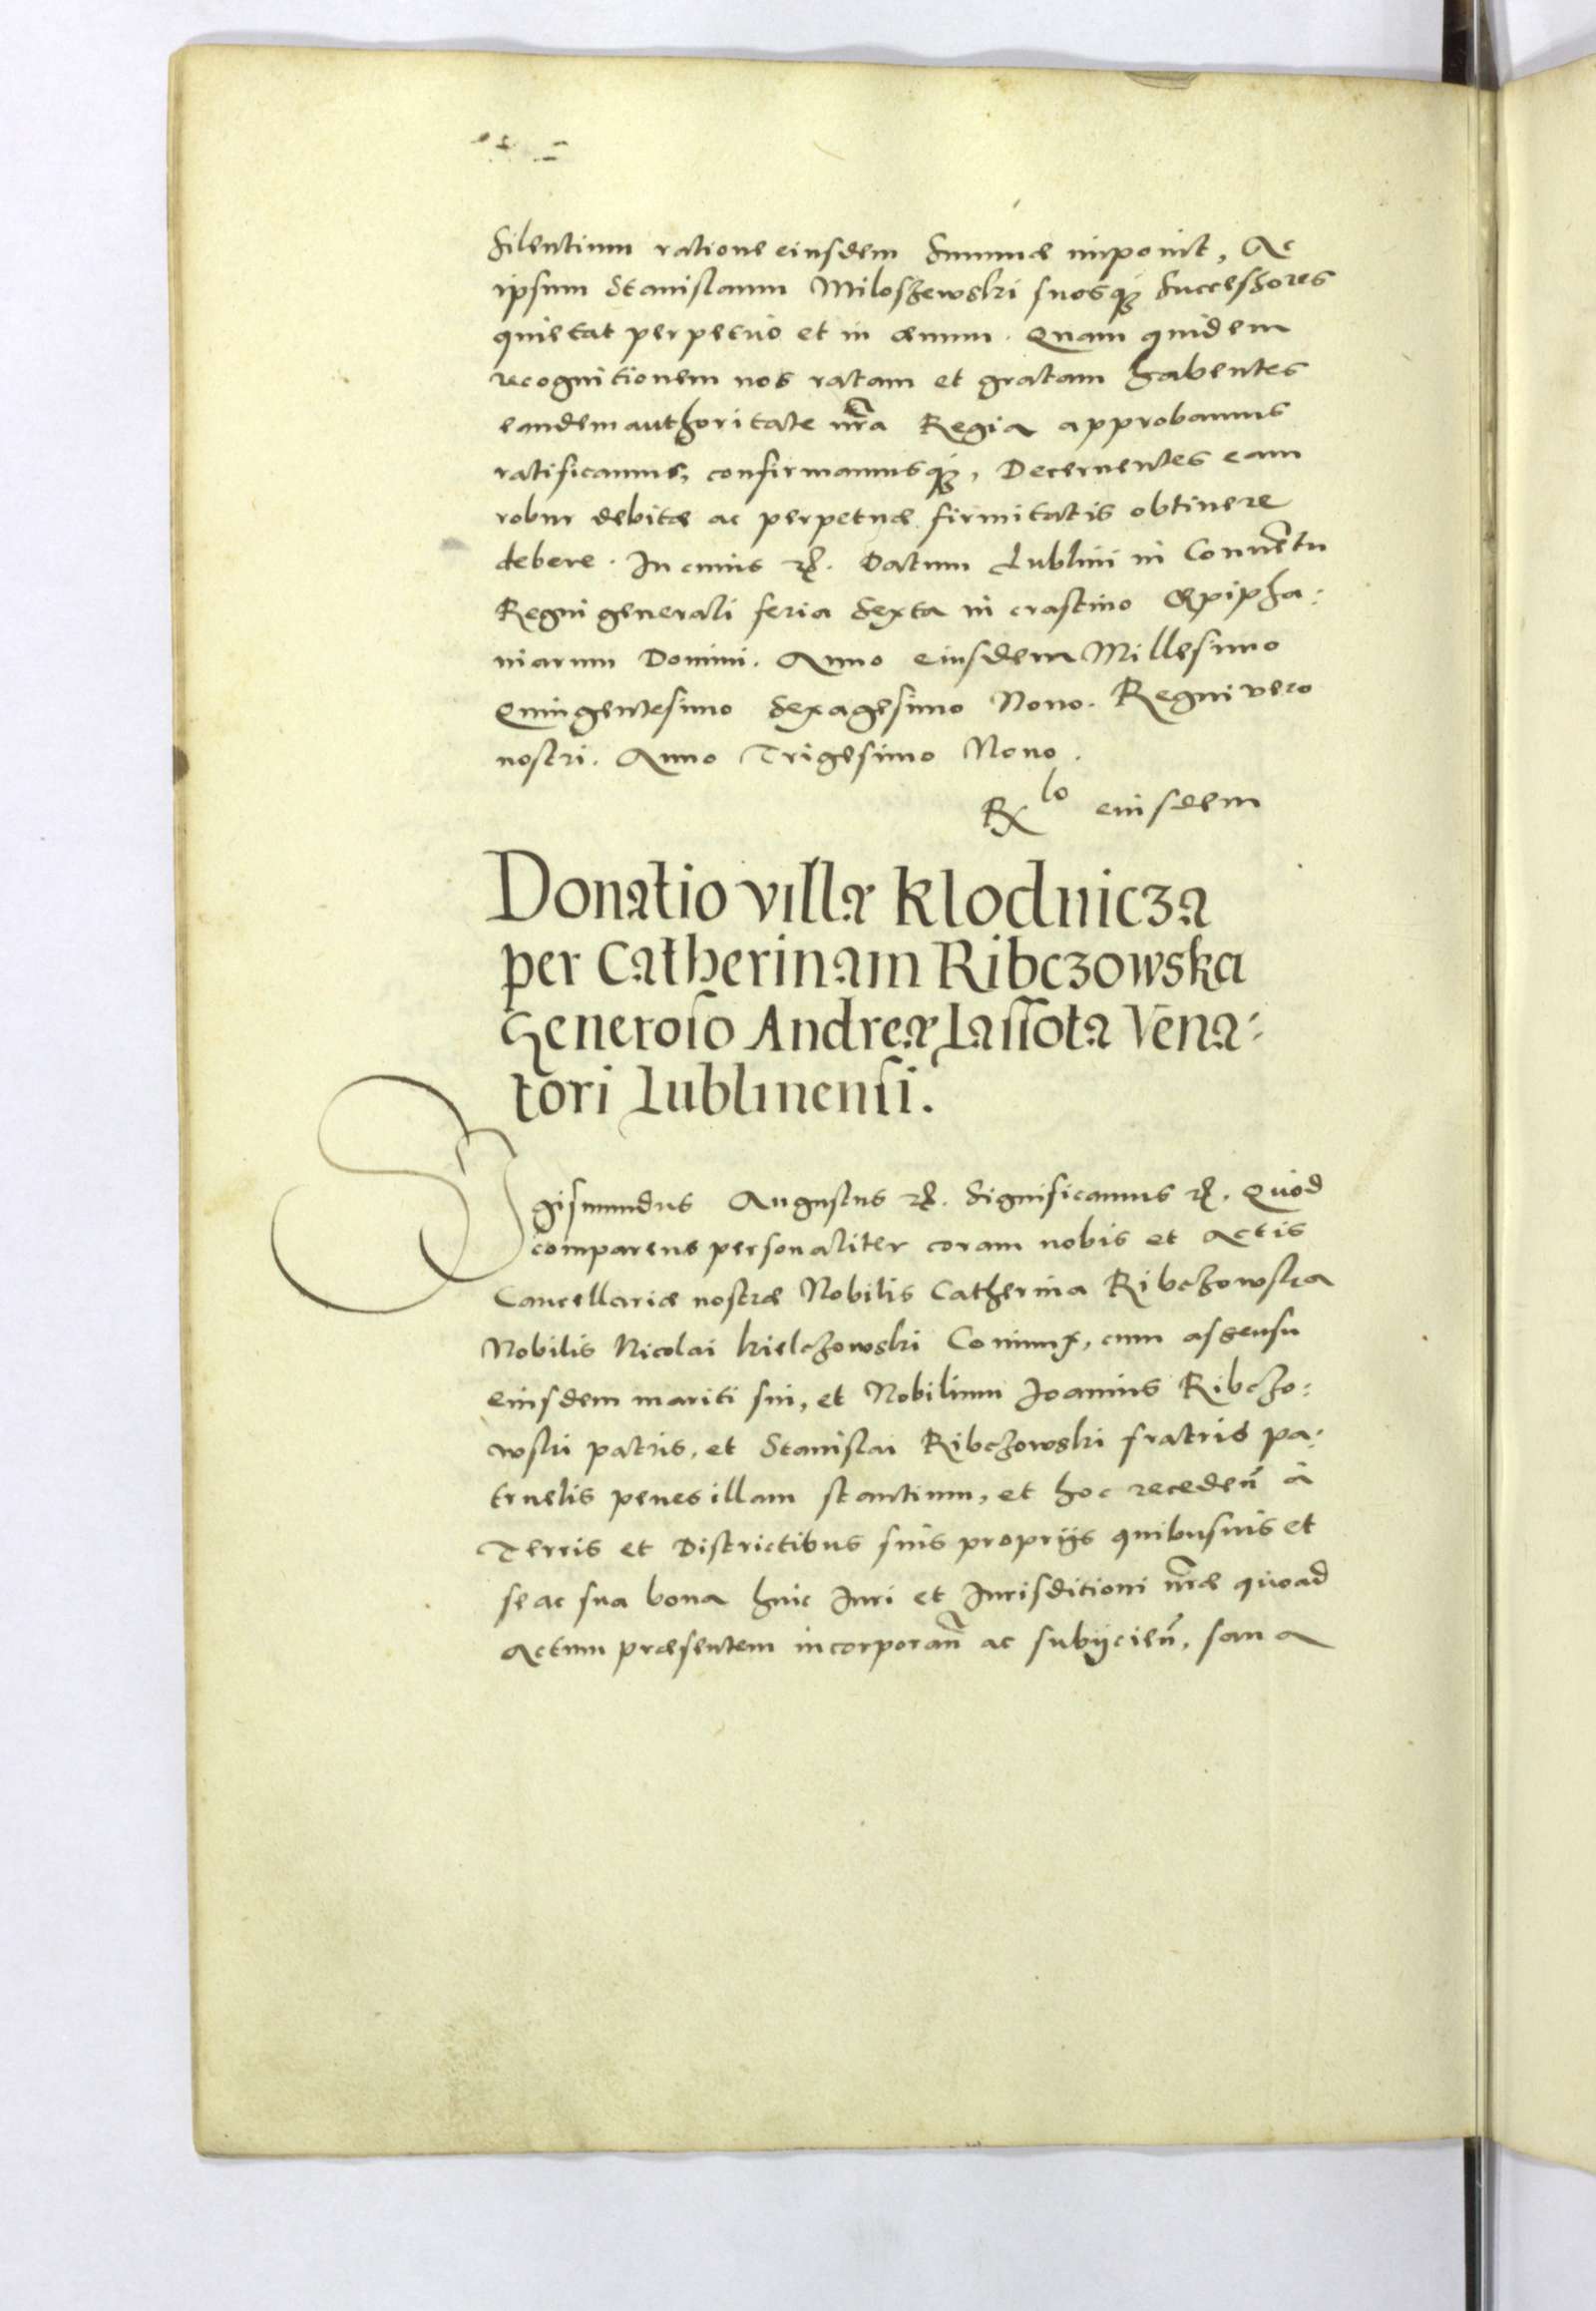 Silentium ratione eiusdem Summæ imponit, Ac
ipsum Stanislaum Miloszewski suosq́ꝫ Successores
quietat perpetuo et in æuum. Quam quidem
recognitionem nos ratam et gratam habentes
eandem authoritate nr̃a Regia approbamus
ratificamus, confirmamusq́ꝫ, Decernentes eam
robur debitæ ac perpetuæ firmitatis obtinere
debere. In cuius rȩ. Datum Lublini in Conuẽtu
Regni generali feria Sexta in crastino Epipha:
niarum Domini. Anno eiusdem Millesimo
Quingentesimo Sexagesimo Nono. Regni vero
nostri. Anno Trigesimo Nono.
Rx lo eiusdem
Donatio villæ Klodnicza
per Catherinam Ribczowska
Generoso Andreæ Lassota Vena:
tori Lublinensi.
Sigismundus Augustus rȩ. Significamus rȩ. Quòd
comparens personaliter coram nobis et Actis
Cancellariæ nostræ Nobilis Catherina Ribczowska
Nobilis Nicolai Kielczowski Coniunx, cum assensu
eiusdem mariti sui, et Nobilium Joannis Ribczo:
wski patris, et Stanislai Ribczowski fratris pa:
truelis penes illam stantium, et hoc recedeñ à
Terris et Districtibus suis proprijs quibusuis et
se ac sua bona huic Iuri et Iurisditioni nr̃æ quoad
Actum præsentem incorporañ ac subijcieñ, sana